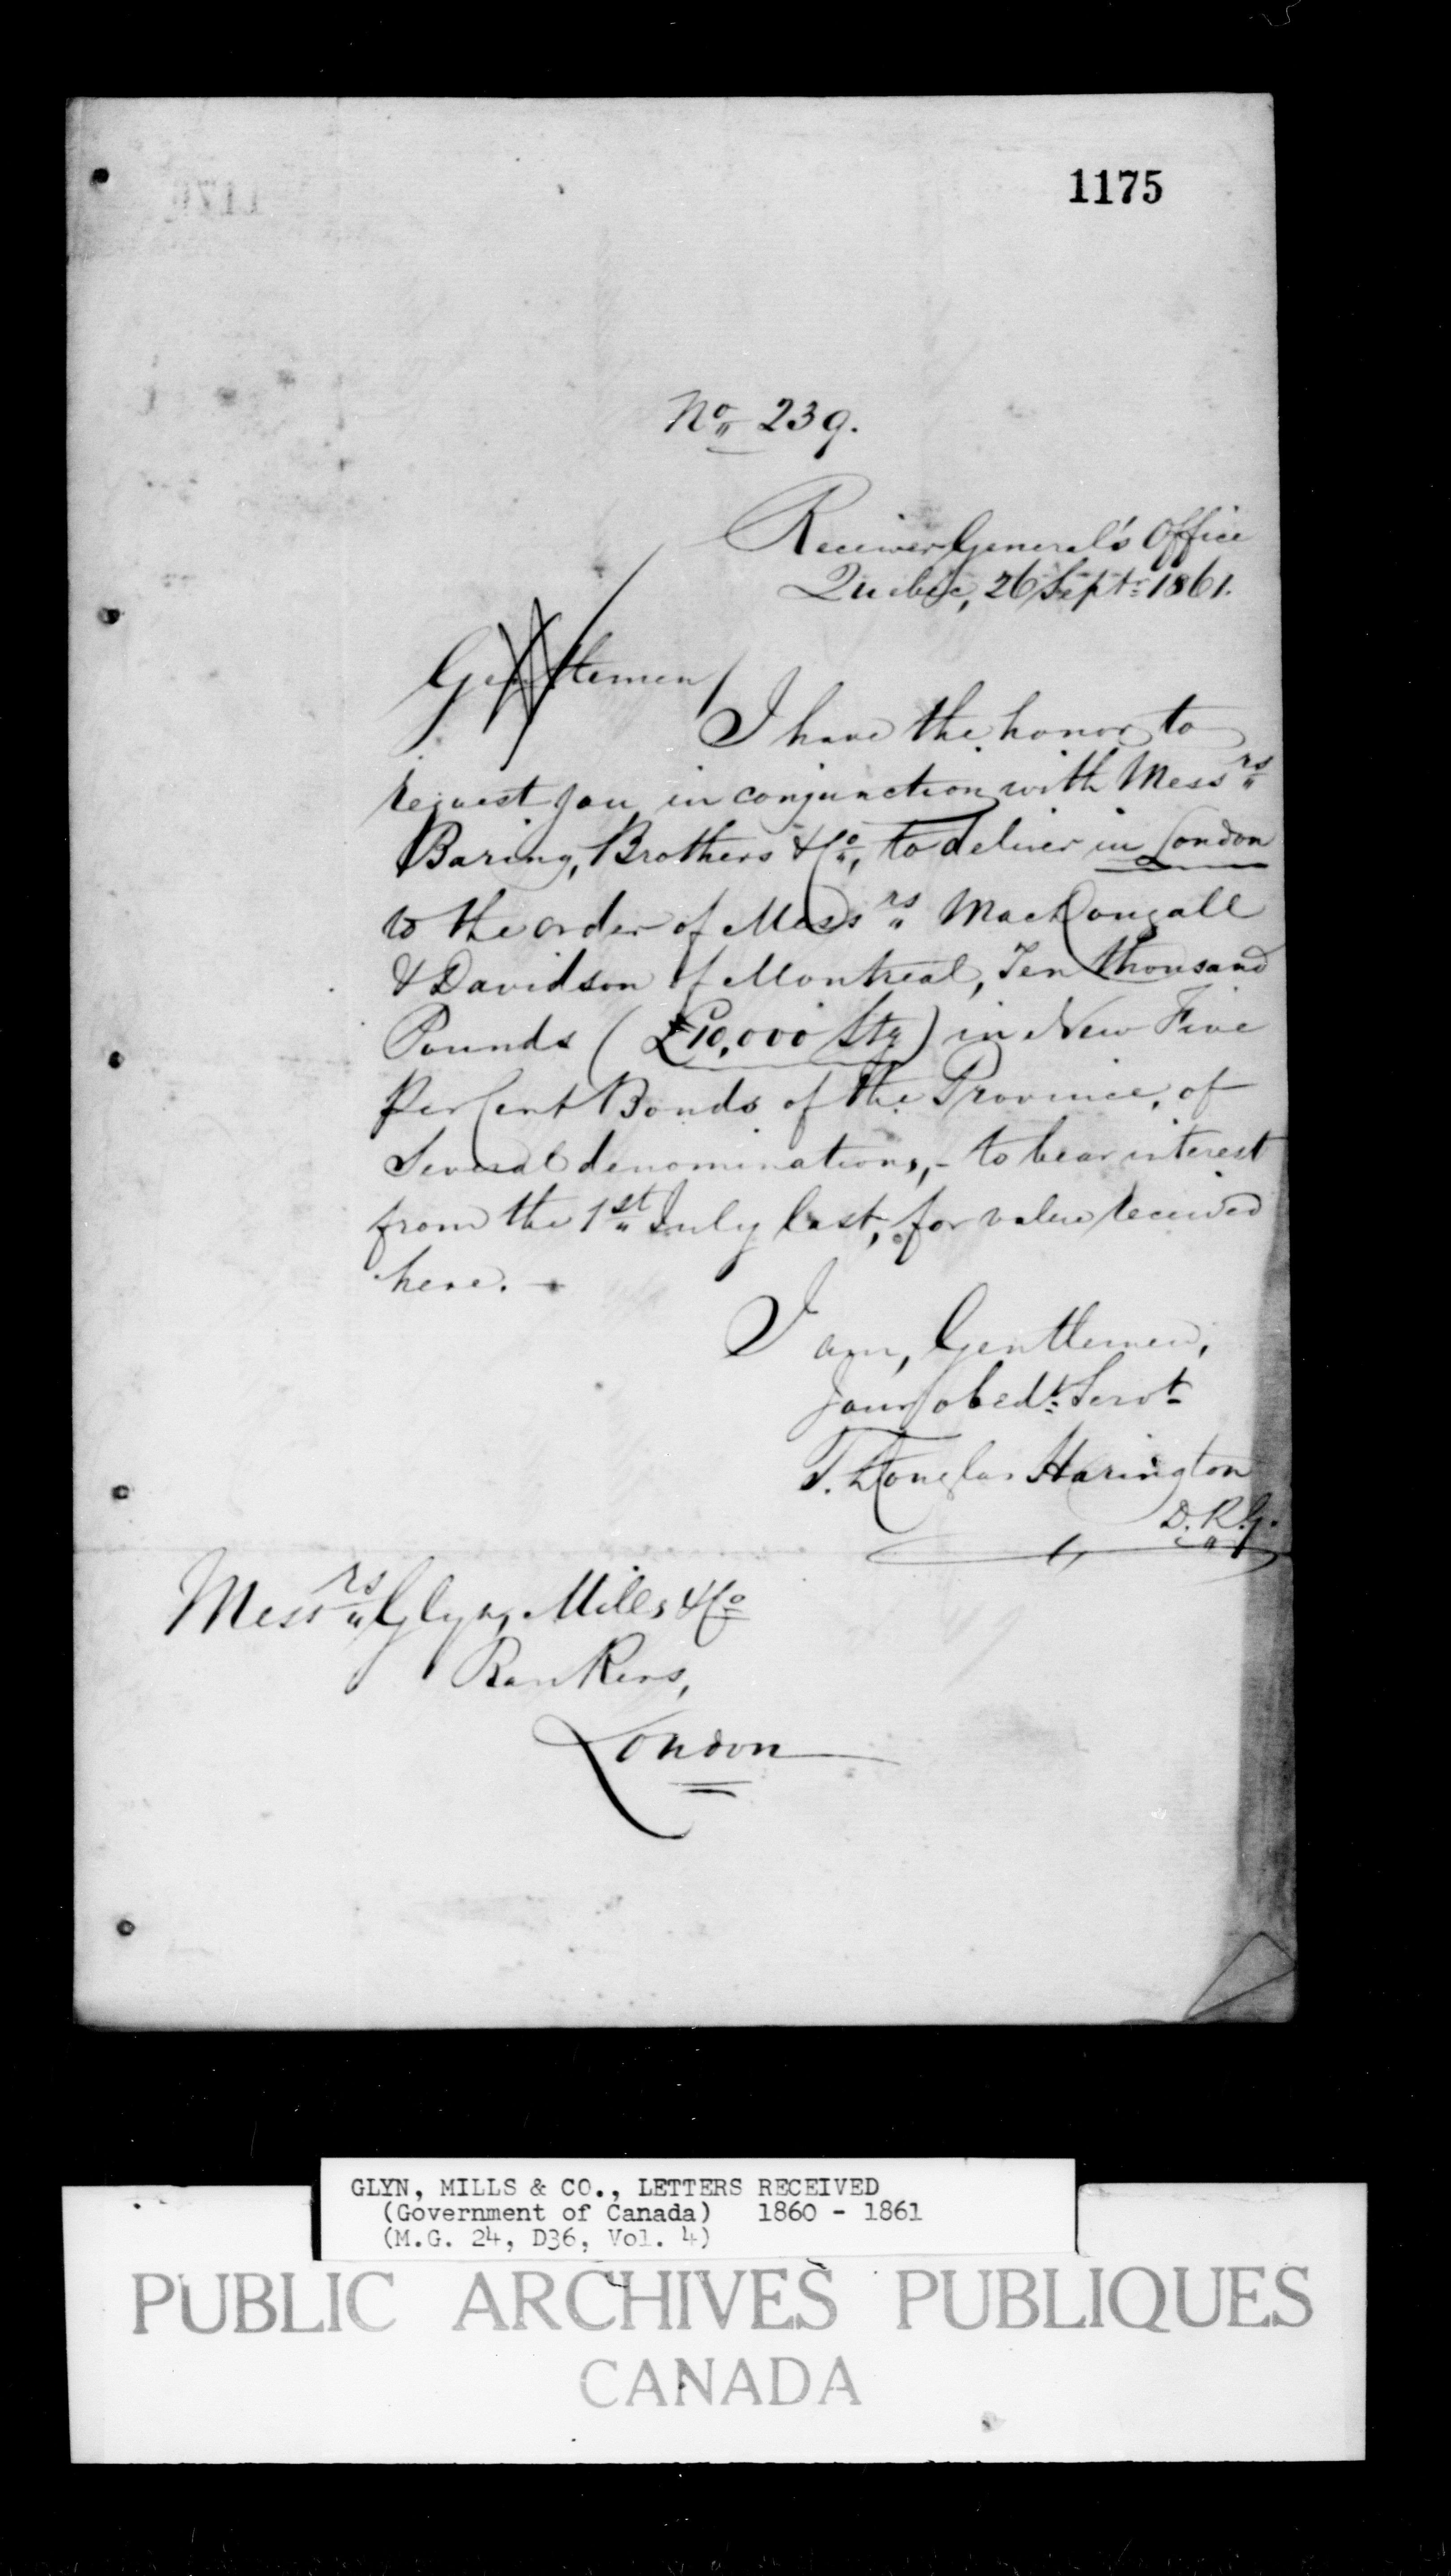 1175
No 239.
Receiver General's Office
Quebec, 26 Sept. 1861.
Gentlemen,
I have the honor to
request you in conjunction with Messrs
Baring, Brothers & Co, to deliver in London
to the order of Messrs MacDougall
& Davidson of Montreal, Ten thousand
Pounds (£10,000 Stg) in New Five
per Cent Bonds of the Province, of
several denominations, - to bear interest
from the 1st July last, for value received
here. -
I am, Gentlemen,
Your obedt. Servt
T. Douglas Harington
D.R.G.
Messrs Glyn, Mills & Co
Bankers,
London
GLYN, MILLS & CO., LETTERS RECEIVED
(Government of Canada) 1860 - 1861
(M.G. 24, D36, Vol. 4)
PUBLIC ARCHIVES PUBLIQUES
CANADA